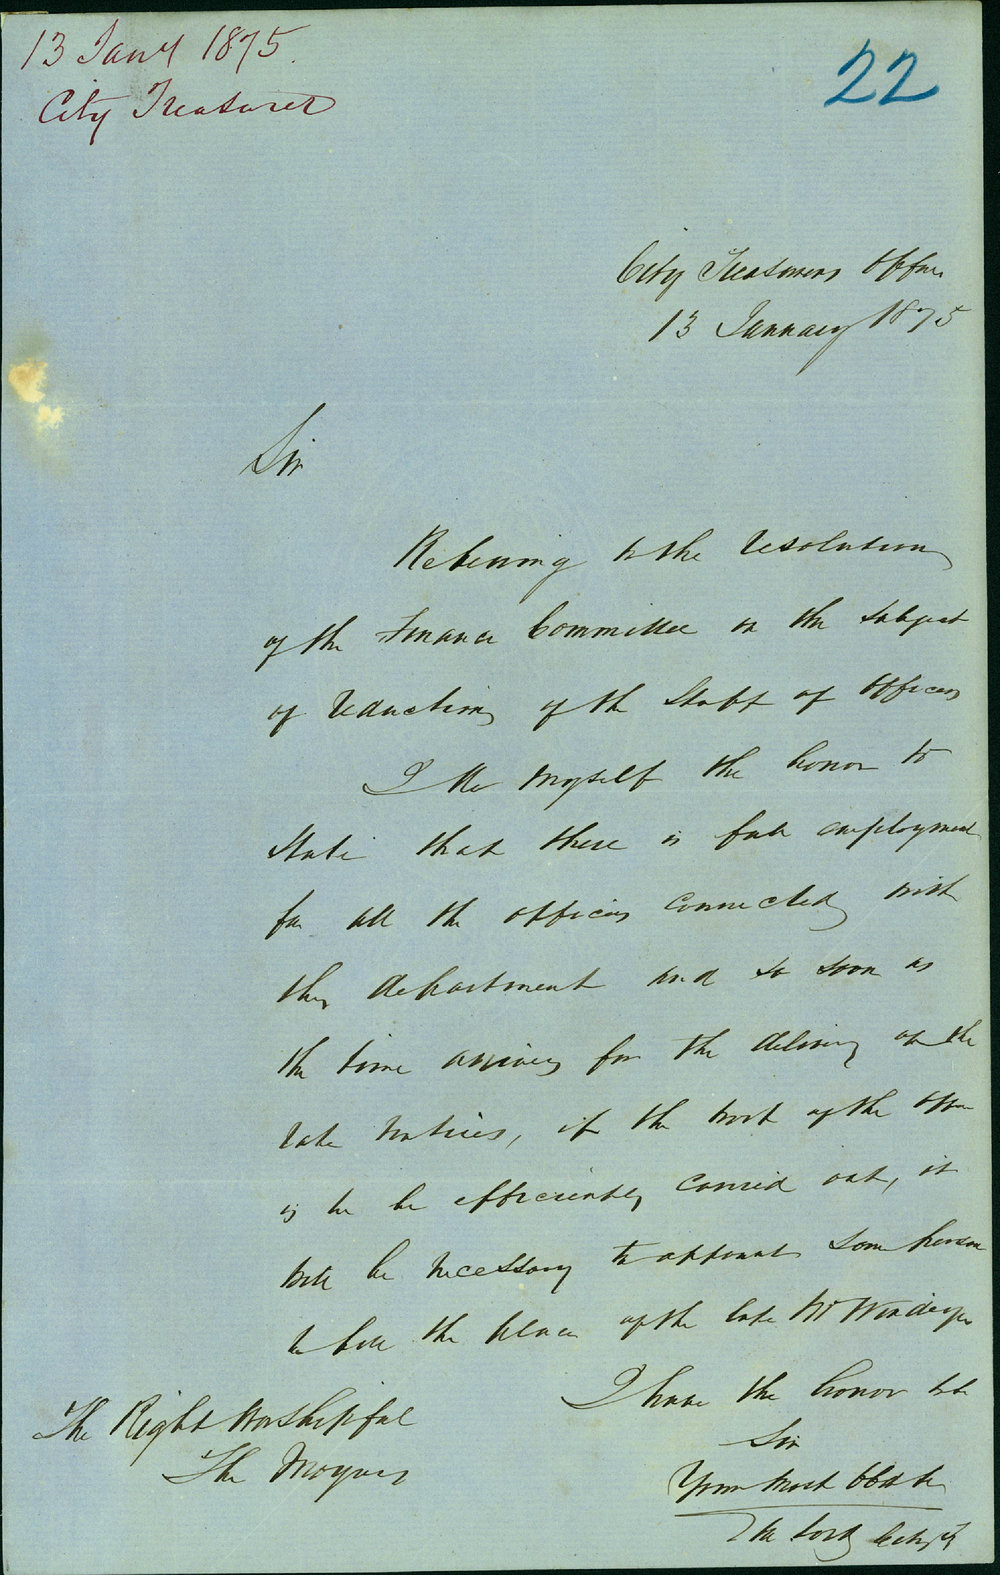 13 Jany 1875.
City Treasurer
22
City Treasurers Office
13 January 1875
Sir
Referring to the resolution
of the Finance Committee on the subject
of reductions of the Staff of Officers
I the myself the honor to
state that there is full employment
for all the officers connected with
this department and so soon as
the time arrives for the delivery of the
rate notices, if the work of the office
is to be efficiently carried out, it
will be necessary to appoint some person
to fill the place of the late Mr
I have the honor to be
Sir
Your most Obdt
The Right Worshipful
The Mayor